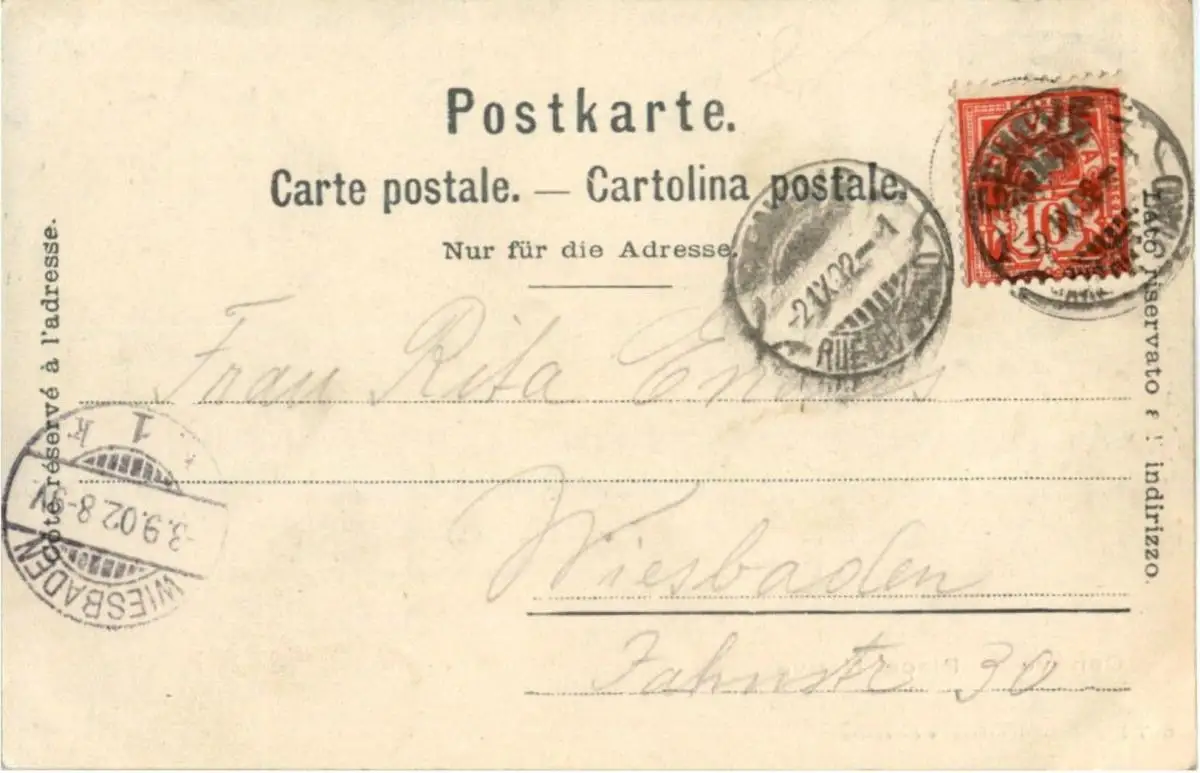 Postkarte.
Carte postale. — Cartolina postale.
Nur für die Adresse.
Côté réservé à l'adresse.
Lato riservato indirizzo.
10
-2.IX.02.-1
RUE DU
Frau Rita
WIESBADEN
-3.9.02.8-9V
1 k
Wiesbaden
Jahnstr 30